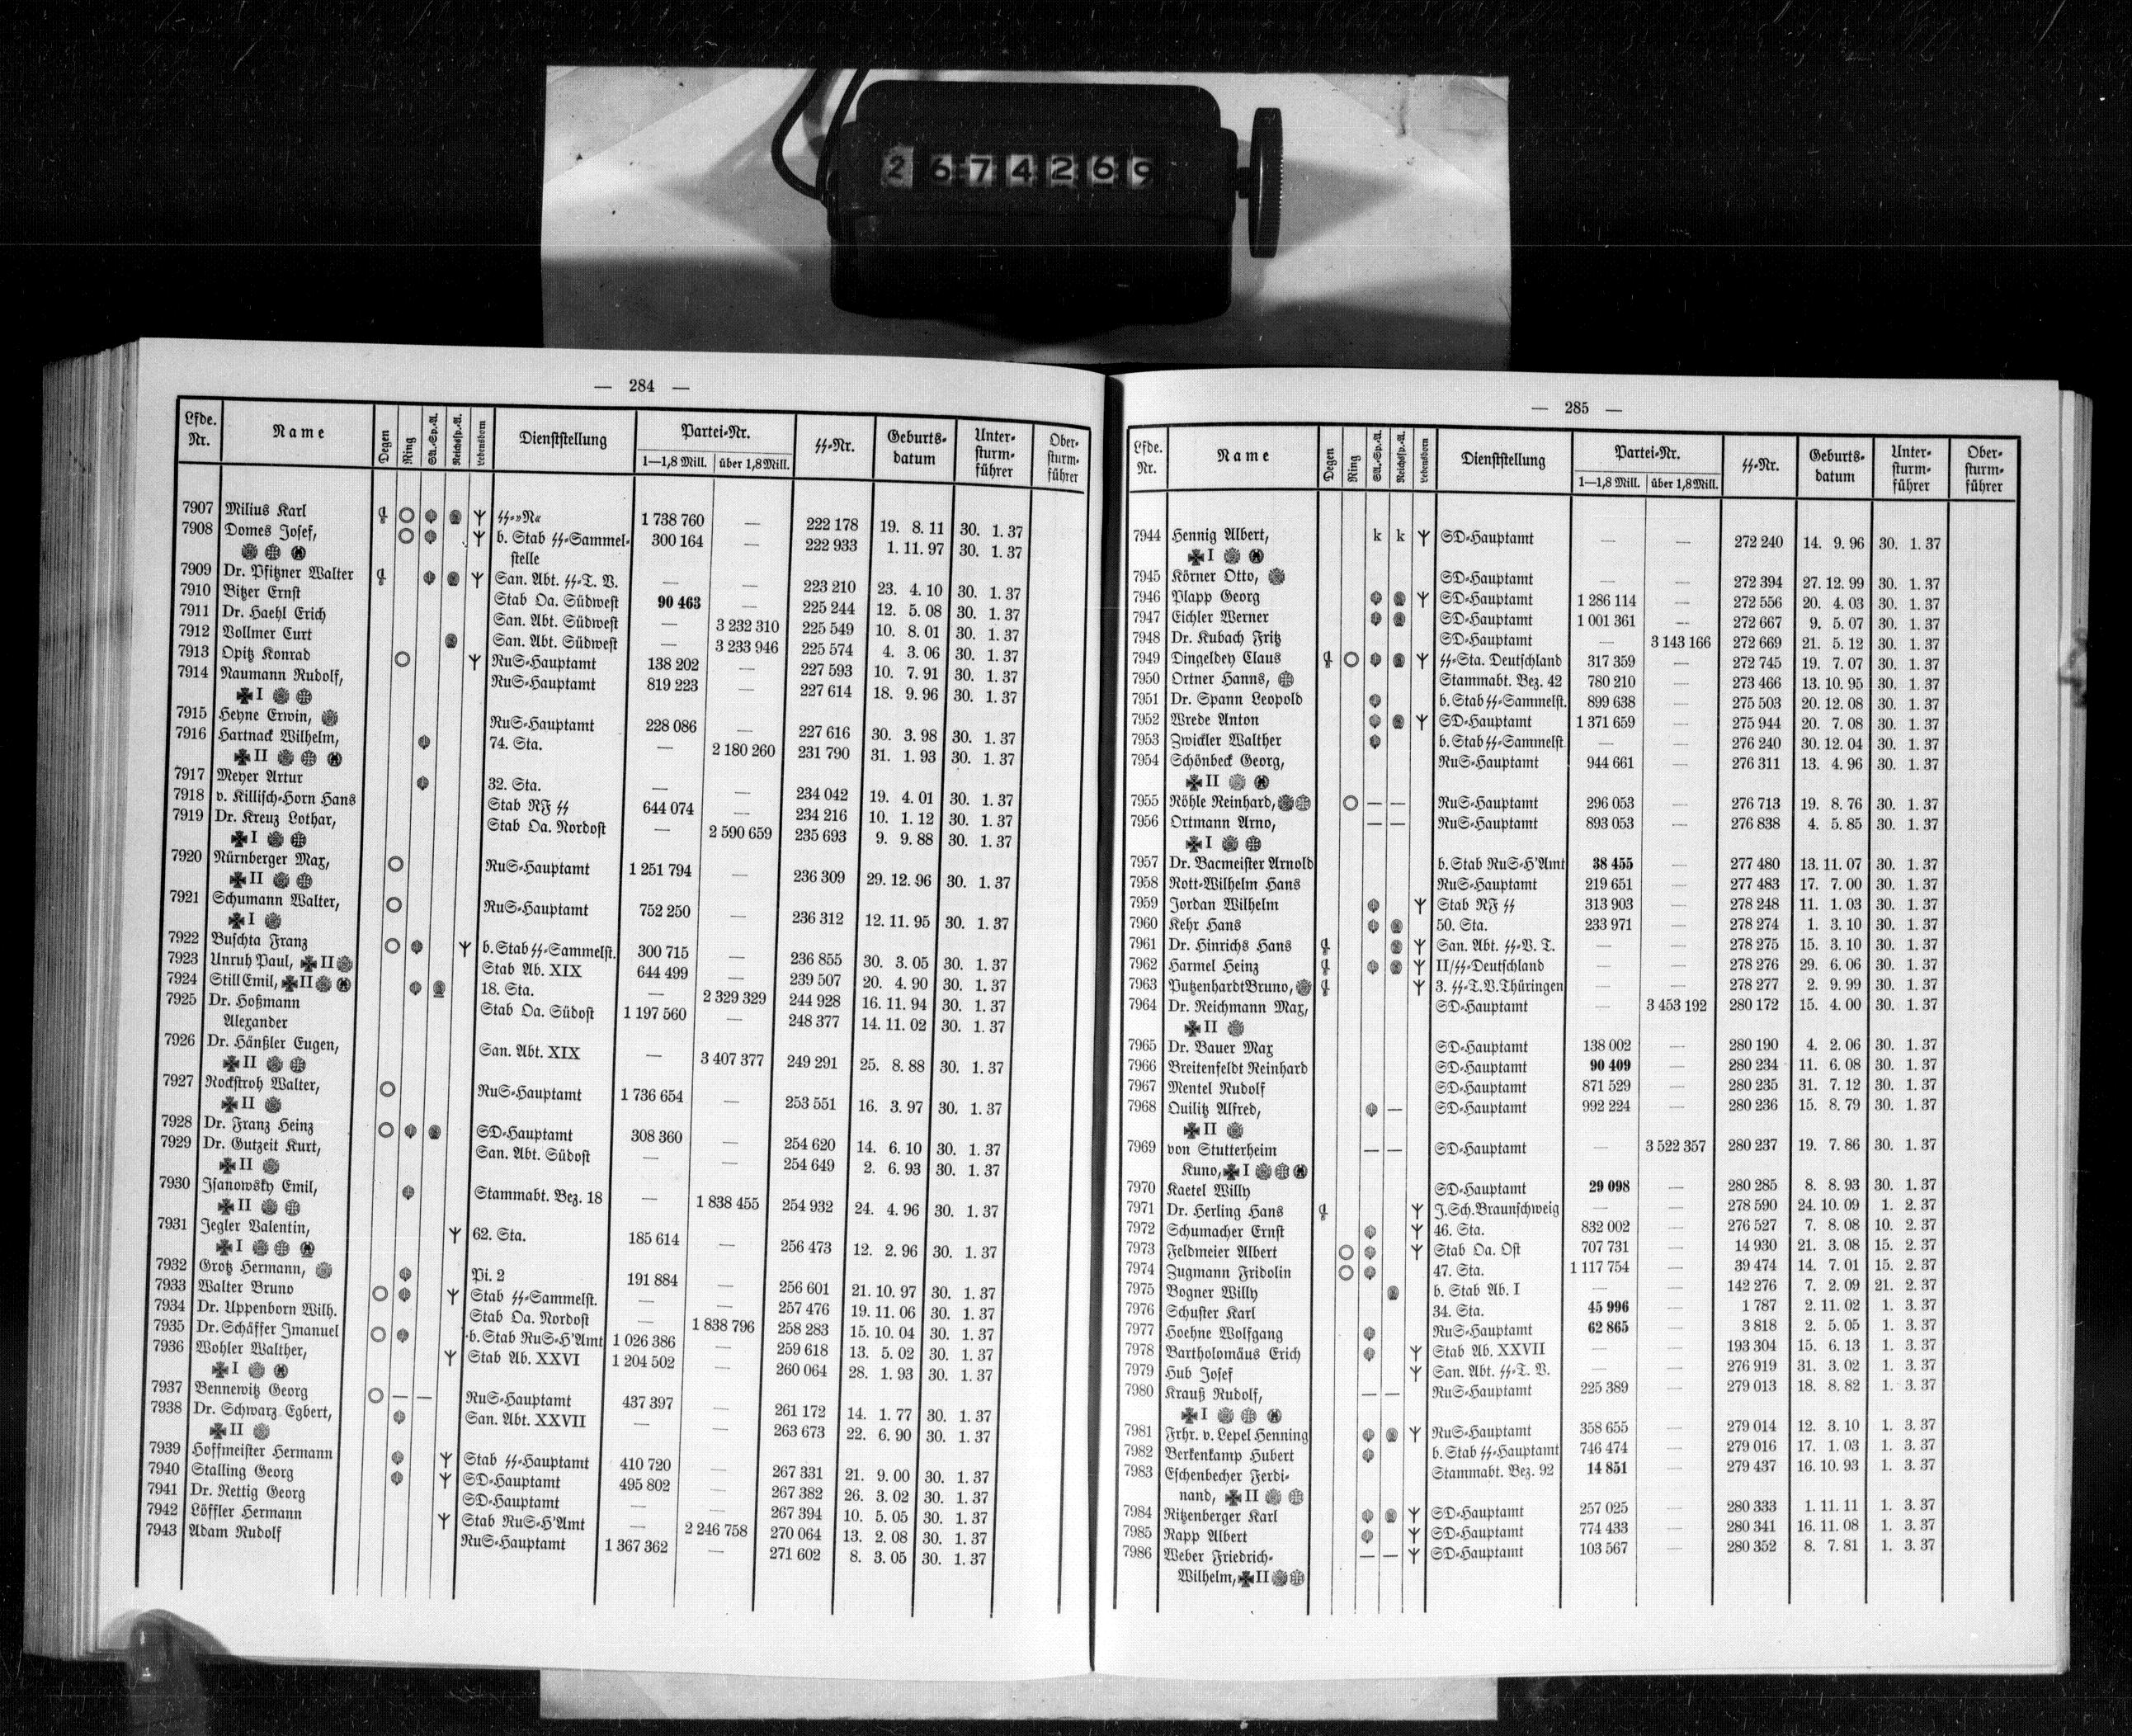 2674269
— 284 —
Lfde. Nr. Name Degen Ring SA.-Sp.-A. Reichssp.-A. Lebensborn Dienststellung Partei-Nr. 1—1,8 Mill. über 1,8 Mill. ᛋᛋ-Nr. Geburts-datum Unter-sturm-führer Ober-sturm-führer
7907 Milius Karl ᛋᛋ-»N« 1 738 760 — 222 178 19. 8. 11 30. 1. 37
7908 Domes Josef, b. Stab ᛋᛋ-Sammel- 300 164 — 222 933 1. 11. 97 30. 1. 37
stelle
7909 Dr. Pfitzner Walter San. Abt. ᛋᛋ-T. V. — — 223 210 23. 4. 10 30. 1. 37
7910 Bitzer Ernst Stab Oa. Südwest 90 463 — 225 244 12. 5. 08 30. 1. 37
7911 Dr. Haehl Erich San. Abt. Südwest — 3 232 310 225 549 10. 8. 01 30. 1. 37
7912 Vollmer Curt San. Abt. Südwest — 3 233 946 225 574 4. 3. 06 30. 1. 37
7913 Opitz Konrad RuS-Hauptamt 138 202 — 227 593 10. 7. 91 30. 1. 37
7914 Naumann Rudolf, RuS-Hauptamt 819 223 — 227 614 18. 9. 96 30. 1. 37
I
7915 Heyne Erwin, RuS-Hauptamt 228 086 — 227 616 30. 3. 98 30. 1. 37
7916 Hartnack Wilhelm, 74. Sta. — 2 180 260 231 790 31. 1. 93 30. 1. 37
II
7917 Meyer Artur 32. Sta. — — 234 042 19. 4. 01 30. 1. 37
7918 v. Killisch-Horn Hans Stab RF ᛋᛋ 644 074 — 234 216 10. 1. 12 30. 1. 37
7919 Dr. Kreuz Lothar, Stab Oa. Nordost — 2 590 659 235 693 9. 9. 88 30. 1. 37
I
7920 Nürnberger Max, RuS-Hauptamt 1 251 794 — 236 309 29. 12. 96 30. 1. 37
II
7921 Schumann Walter, RuS-Hauptamt 752 250 — 236 312 12. 11. 95 30. 1. 37
I
7922 Buschta Franz b. Stab ᛋᛋ-Sammelst. 300 715 — 236 855 30. 3. 05 30. 1. 37
7923 Unruh Paul, II Stab Ab. XIX 644 499 — 239 507 20. 4. 90 30. 1. 37
7924 Still Emil, II 18. Sta. — 2 329 329 244 928 16. 11. 94 30. 1. 37
7925 Dr. Hoßmann Stab Oa. Südost 1 197 560 — 248 377 14. 11. 02 30. 1. 37
Alexander
7926 Dr. Hänßler Eugen, San. Abt. XIX — 3 407 377 249 291 25. 8. 88 30. 1. 37
II
7927 Rockstroh Walter, RuS-Hauptamt 1 736 654 — 253 551 16. 3. 97 30. 1. 37
II
7928 Dr. Franz Heinz SD-Hauptamt 308 360 — 254 620 14. 6. 10 30. 1. 37
7929 Dr. Gutzeit Kurt, San. Abt. Südost — — 254 649 2. 6. 93 30. 1. 37
II
7930 Isanowsky Emil, Stammabt. Bez. 18 — 1 838 455 254 932 24. 4. 96 30. 1. 37
II
7931 Jegler Valentin, 62. Sta. 185 614 — 256 473 12. 2. 96 30. 1. 37
I
7932 Grotz Hermann, Pi. 2 191 884 — 256 601 21. 10. 97 30. 1. 37
7933 Walter Bruno Stab ᛋᛋ-Sammelst. — — 257 476 19. 11. 06 30. 1. 37
7934 Dr. Uppenborn Wilh. Stab Oa. Nordost — 1 838 796 258 283 15. 10. 04 30. 1. 37
7935 Dr. Schäffer Imanuel b. Stab RuS-H'Amt 1 026 386 — 259 618 13. 5. 02 30. 1. 37
7936 Wohler Walther, Stab Ab. XXVI 1 204 502 — 260 064 28. 1. 93 30. 1. 37
I
7937 Bennewitz Georg — — RuS-Hauptamt 437 397 — 261 172 14. 1. 77 30. 1. 37
7938 Dr. Schwarz Egbert, San. Abt. XXVII — — 263 673 22. 6. 90 30. 1. 37
II
7939 Hoffmeister Hermann Stab ᛋᛋ-Hauptamt 410 720 — 267 331 21. 9. 00 30. 1. 37
7940 Stalling Georg SD-Hauptamt 495 802 — 267 382 26. 3. 02 30. 1. 37
7941 Dr. Rettig Georg SD-Hauptamt — — 267 394 10. 5. 05 30. 1. 37
7942 Löffler Hermann Stab RuS-H'Amt — 2 246 758 270 064 13. 2. 08 30. 1. 37
7943 Adam Rudolf RuS-Hauptamt 1 367 362 — 271 602 8. 3. 05 30. 1. 37
— 285 —
Lfde. Nr. Name Degen Ring SA.-Sp.-A. Reichssp.-A. Lebensborn Dienststellung Partei-Nr. 1—1,8 Mill. über 1,8 Mill. ᛋᛋ-Nr. Geburts-datum Unter-sturm-führer Ober-sturm-führer
7944 Hennig Albert, k k SD-Hauptamt — — 272 240 14. 9. 96 30. 1. 37
I
7945 Körner Otto, SD-Hauptamt — — 272 394 27. 12. 99 30. 1. 37
7946 Plapp Georg SD-Hauptamt 1 286 114 — 272 556 20. 4. 03 30. 1. 37
7947 Eichler Werner SD-Hauptamt 1 001 361 — 272 667 9. 5. 07 30. 1. 37
7948 Dr. Kubach Fritz SD-Hauptamt — 3 143 166 272 669 21. 5. 12 30. 1. 37
7949 Dingeldey Claus ᛋᛋ-Sta. Deutschland 317 359 — 272 745 19. 7. 07 30. 1. 37
7950 Ortner Hanns, Stammabt. Bez. 42 780 210 — 273 466 13. 10. 95 30. 1. 37
7951 Dr. Spann Leopold b. Stab ᛋᛋ-Sammelst. 899 638 — 275 503 20. 12. 08 30. 1. 37
7952 Wrede Anton SD-Hauptamt 1 371 659 — 275 944 20. 7. 08 30. 1. 37
7953 Zwickler Walther b. Stab ᛋᛋ-Sammelst. — — 276 240 30. 12. 04 30. 1. 37
7954 Schönbeck Georg, RuS-Hauptamt 944 661 — 276 311 13. 4. 96 30. 1. 37
II
7955 Röhle Reinhard, — — RuS-Hauptamt 296 053 — 276 713 19. 8. 76 30. 1. 37
7956 Ortmann Arno, — — RuS-Hauptamt 893 053 — 276 838 4. 5. 85 30. 1. 37
I
7957 Dr. Bacmeister Arnold b. Stab RuS-H'Amt 38 455 — 277 480 13. 11. 07 30. 1. 37
7958 Rott-Wilhelm Hans RuS-Hauptamt 219 651 — 277 483 17. 7. 00 30. 1. 37
7959 Jordan Wilhelm Stab RF ᛋᛋ 313 903 — 278 248 11. 1. 03 30. 1. 37
7960 Kehr Hans 50. Sta. 233 971 — 278 274 1. 3. 10 30. 1. 37
7961 Dr. Hinrichs Hans San. Abt. ᛋᛋ-V. T. — — 278 275 15. 3. 10 30. 1. 37
7962 Harmel Heinz II/ᛋᛋ-Deutschland — — 278 276 29. 6. 06 30. 1. 37
7963 Putzenhardt Bruno, 3. ᛋᛋ-T.V.Thüringen — — 278 277 2. 9. 99 30. 1. 37
7964 Dr. Reichmann Max, SD-Hauptamt — 3 453 192 280 172 15. 4. 00 30. 1. 37
II
7965 Dr. Bauer Max SD-Hauptamt 138 002 — 280 190 4. 2. 06 30. 1. 37
7966 Breitenfeldt Reinhard SD-Hauptamt 90 409 — 280 234 11. 6. 08 30. 1. 37
7967 Mentel Rudolf SD-Hauptamt 871 529 — 280 235 31. 7. 12 30. 1. 37
7968 Quilitz Alfred, — SD-Hauptamt 992 224 — 280 236 15. 8. 79 30. 1. 37
II
7969 von Stutterheim — — SD-Hauptamt — 3 522 357 280 237 19. 7. 86 30. 1. 37
Kuno, I
7970 Kaetel Willy SD-Hauptamt 29 098 — 280 285 8. 8. 93 30. 1. 37
7971 Dr. Herling Hans J.Sch.Braunschweig — — 278 590 24. 10. 09 1. 2. 37
7972 Schumacher Ernst 46. Sta. 832 002 — 276 527 7. 8. 08 10. 2. 37
7973 Feldmeier Albert Stab Oa. Ost 707 731 — 14 930 21. 3. 08 15. 2. 37
7974 Zugmann Fridolin 47. Sta. 1 117 754 — 39 474 14. 7. 01 15. 2. 37
7975 Bogner Willy b. Stab Ab. I — — 142 276 7. 2. 09 21. 2. 37
7976 Schuster Karl 34. Sta. 45 996 — 1 787 2. 11. 02 1. 3. 37
7977 Hoehne Wolfgang RuS-Hauptamt 62 865 — 3 818 2. 5. 05 1. 3. 37
7978 Bartholomäus Erich Stab Ab. XXVII — — 193 304 15. 6. 13 1. 3. 37
7979 Hub Josef San. Abt. ᛋᛋ-T. V. — — 276 919 31. 3. 02 1. 3. 37
7980 Krauß Rudolf, — — RuS-Hauptamt 225 389 — 279 013 18. 8. 82 1. 3. 37
I
7981 Frhr. v. Lepel Henning RuS-Hauptamt 358 655 — 279 014 12. 3. 10 1. 3. 37
7982 Berkenkamp Hubert b. Stab ᛋᛋ-Hauptamt 746 474 — 279 016 17. 1. 03 1. 3. 37
7983 Eschenbecher Ferdi- Stammabt. Bez. 92 14 851 — 279 437 16. 10. 93 1. 3. 37
nand, II
7984 Ritzenberger Karl SD-Hauptamt 257 025 — 280 333 1. 11. 11 1. 3. 37
7985 Rapp Albert SD-Hauptamt 774 433 — 280 341 16. 11. 08 1. 3. 37
7986 Weber Friedrich- — — SD-Hauptamt 103 567 — 280 352 8. 7. 81 1. 3. 37
Wilhelm, II